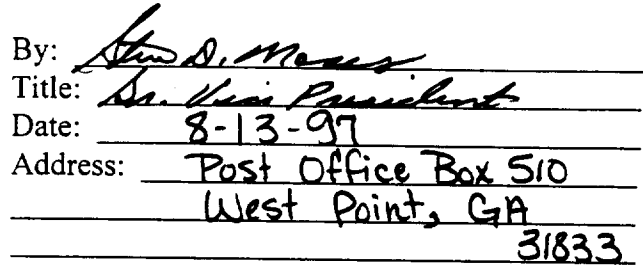 By: D. Moses
Title: Sr. Vice President
Date: 8-13-97
Address: Post Office Box 510
West Point, GA
31833